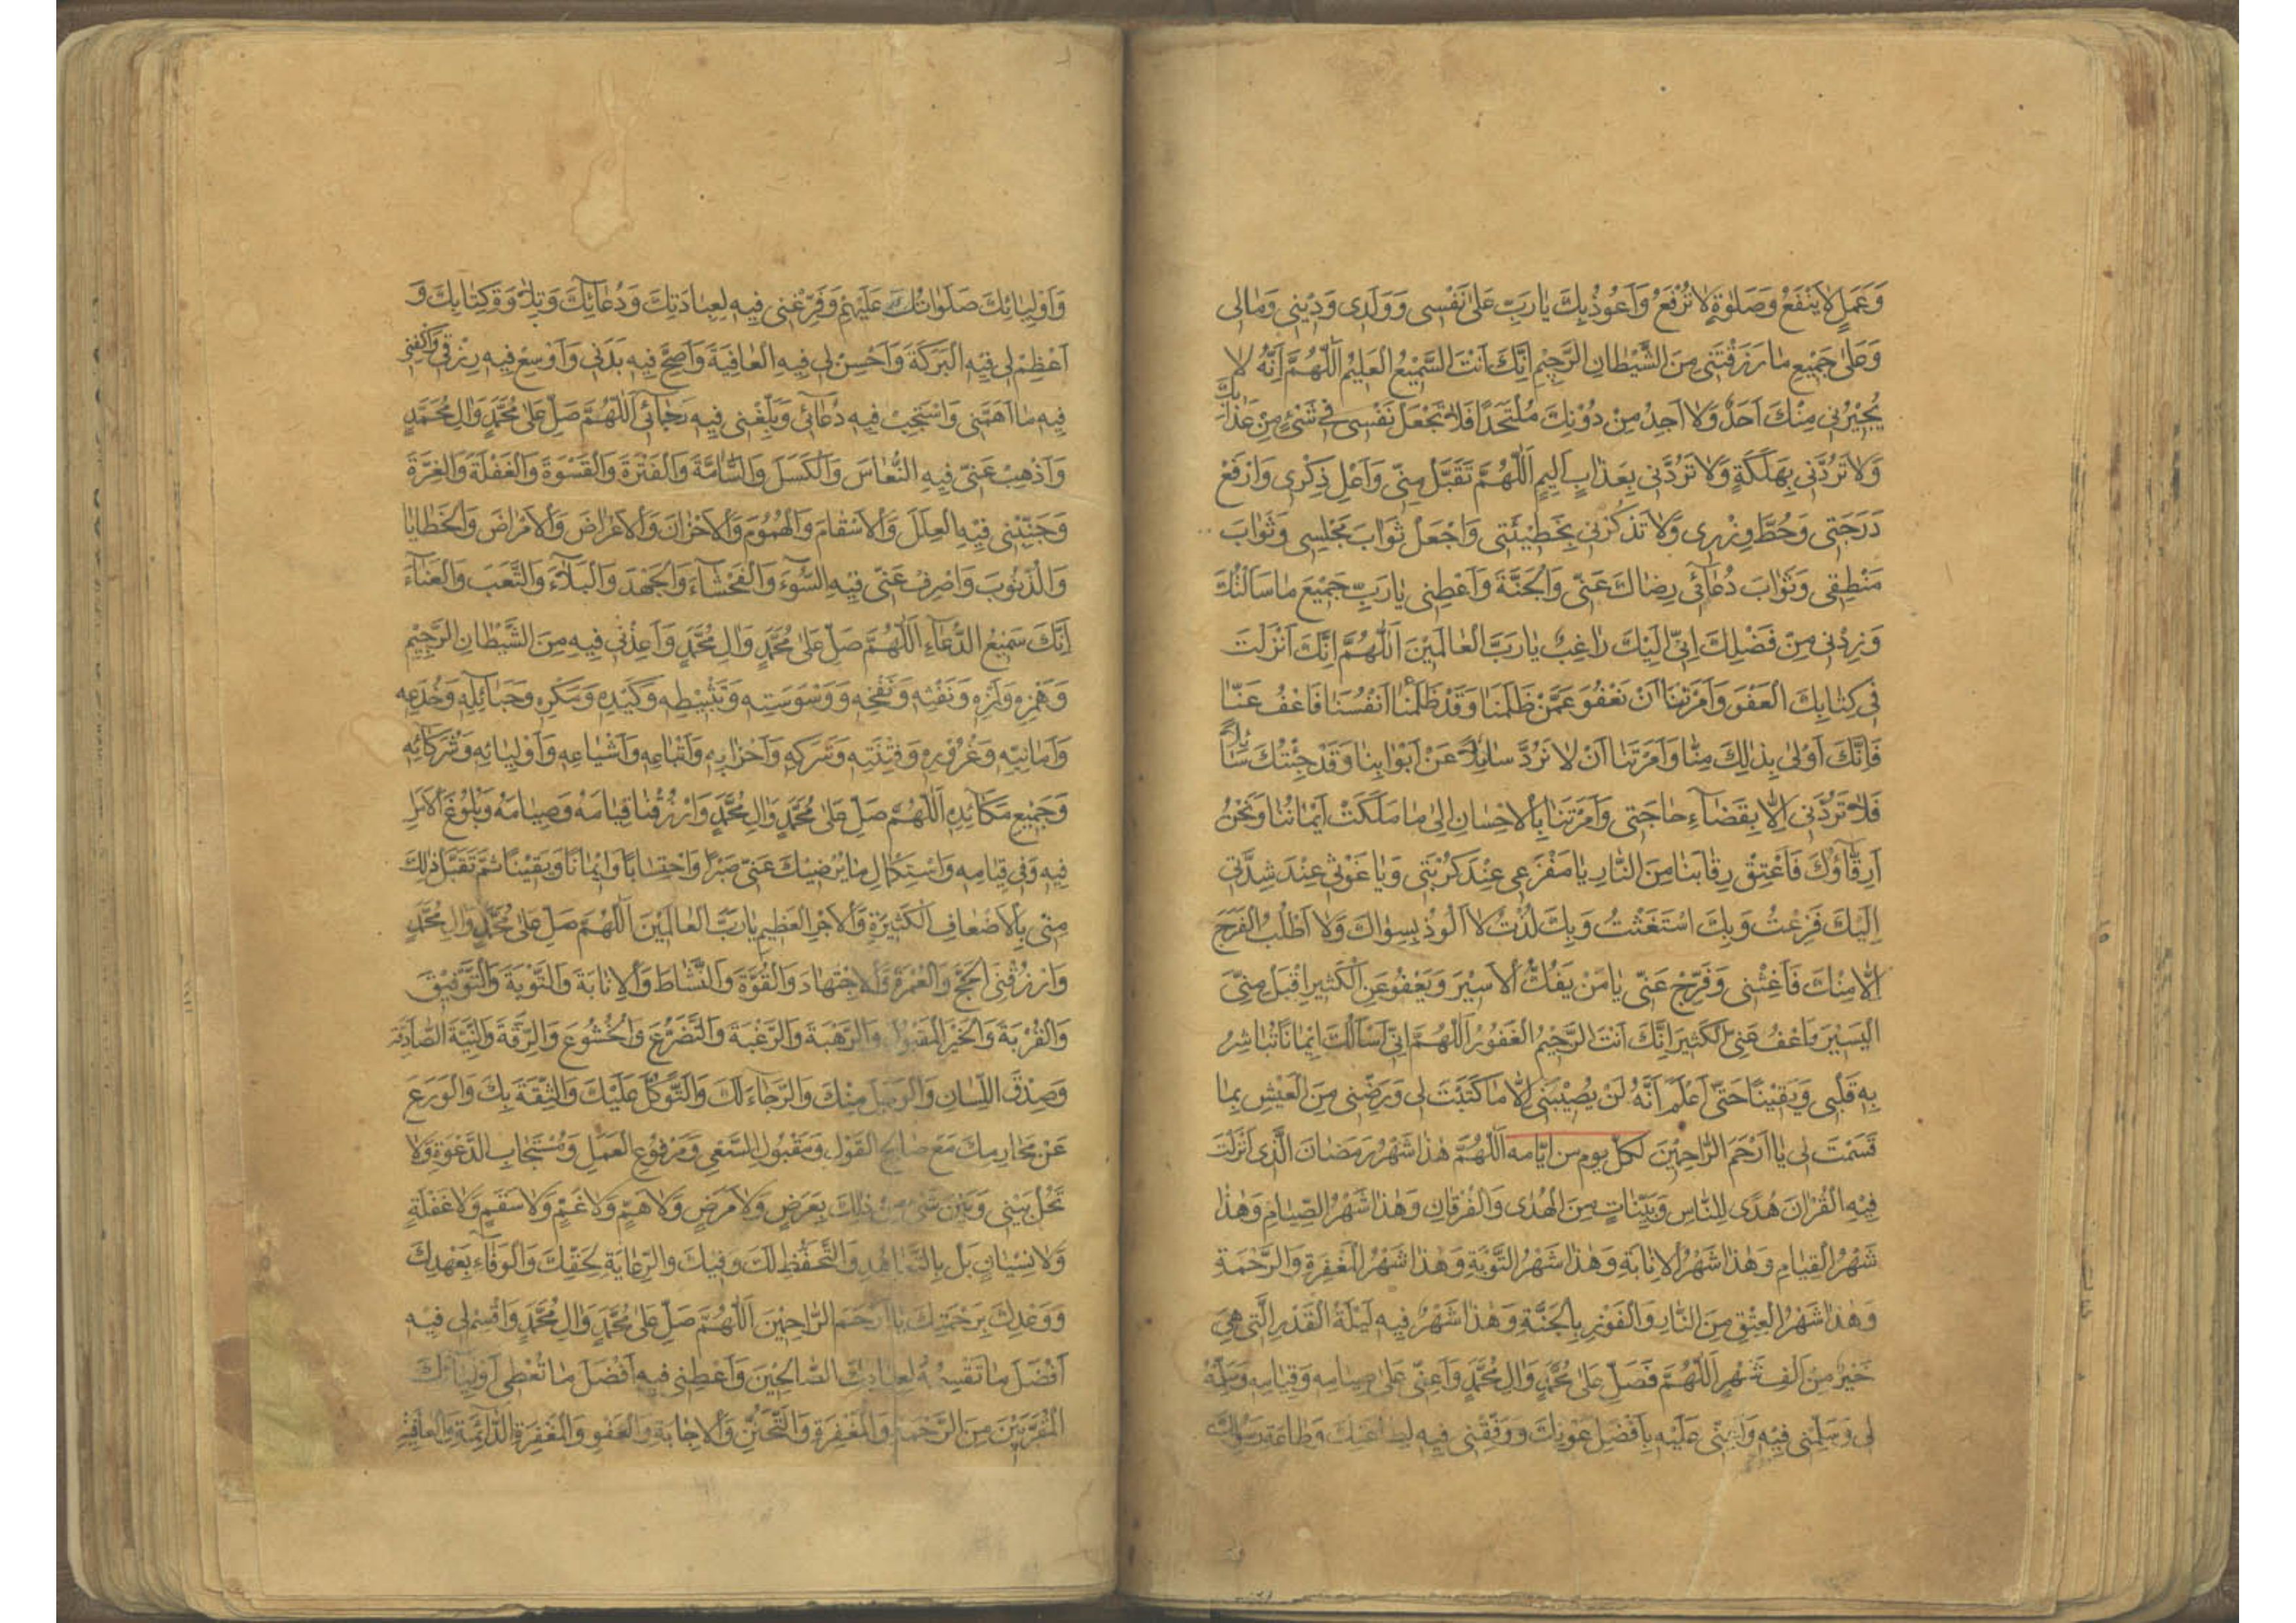 وَعَمَلٍ لَا يَنْفَعُ وَصَلٰوةٍ لَا تُرْفَعُ وَاَعُوذُ بِكَ يَا رَبِّ عَلٰى نَفْسِى وَوَلَدِى وَدِيْنِى وَمَالِى
وَعَلٰى جَمِيْعِ مَا رَزَقْتَنِى مِنَ الشَّيْطَانِ الرَّجِيْمِ اِنَّكَ اَنْتَ السَّمِيْعُ الْعَلِيْمُ اَللّٰهُمَّ اِنَّهُ لَا
يُجِيْرُنِى مِنْكَ اَحَدٌ وَلَا اَجِدُ مِنْ دُوْنِكَ مُلْتَحَدًا فَلَا تَجْعَلْ نَفْسِى فِى شَىْءٍ مِنْ عَذَابِكَ
وَلَا تَرُدَّنِى بِهَلَكَةٍ وَلَا تَرُدَّنِى بِعَذَابٍ اَلِيمٍ اَللّٰهُمَّ تَقَبَّلْ مِنِّى وَاَعْلِ ذِكْرِى وَارْفَعْ
دَرَجَتِى وَحُطَّ وِزْرِى وَلَا تَذْكُرْنِى بِخَطِيْئَتِى وَاجْعَلْ ثَوَابَ مَجْلِسِى وَثَوَابَ
مَنْطِقِى وَثَوَابَ دُعَآئِى رِضَاكَ عَنِّى وَالْجَنَّةَ وَاَعْطِنِى يَا رَبِّ جَمِيْعَ مَا سَاَلْتُكَ
وَزِدْنِى مِنْ فَضْلِكَ اِنِّى اِلَيْكَ رَاغِبٌ يَا رَبَّ الْعَالَمِيْنَ اَللّٰهُمَّ اِنَّكَ اَنْزَلْتَ
فِى كِتَابِكَ الْعَفْوَ وَاَمَرْتَنَا اَنْ نَعْفُوَ عَمَّنْ ظَلَمَنَا وَقَدْ ظَلَمْنَا اَنْفُسَنَا فَاعْفُ عَنَّا
فَاِنَّكَ اَوْلٰى بِذٰلِكَ مِنَّا وَاَمَرْتَنَا اَنْ لَا نَرُدَّ سَايِلًا عَنْ اَبْوَابِنَا وَقَدْ جِئْتُكَ سَائِلًا
فَلَا تَرُدَّنِى اِلَّا بِقَضَآءِ حَاجَتِى وَاَمَرْتَنَا بِالْاِحْسَانِ اِلٰى مَا مَلَكَتْ اَيْمَانُنَا وَنَحْنُ
اَرِقَّاؤُكَ فَاعْتِقْ رِقَابَنَا مِنَ النَّارِ يَا مَفْزَعِى عِنْدَ كُرْبَتِى وَيَا غَوْثِى عِنْدَ شِدَّتِى
اِلَيْكَ فَزِعْتُ وَبِكَ اسْتَغَثْتُ وَبِكَ لُذْتُ لَا اَلُوْذُ بِسِوَاكَ وَلَا اَطْلُبُ الْفَرَجَ
اِلَّا مِنْكَ فَاَغِثْنِى وَفَرِّجْ عَنِّى يَا مَنْ يَفُكُّ الْاَسِيْرَ وَيَعْفُو عَنِ الْكَثِيرِ اِقْبَلْ مِنِّىَ
الْيَسِيْرَ وَاعْفُ عَنِّى الْكَثِيرَ اِنَّكَ اَنْتَ الرَّحِيْمُ الْغَفُورُ اَللّٰهُمَّ اِنِّى اَسْاَلُكَ اِيْمَانًا تُبَاشِرُ
بِهِ قَلْبِى وَيَقِيْنًا حَتّٰى اَعْلَمَ اَنَّهُ لَنْ يُصِيْبَنِى اِلَّا مَا كَتَبْتَ لِى وَرَضِّنِى مِنَ الْعَيْشِ بِمَا
قَسَمْتَ لِى يَا اَرْحَمَ الرَّاحِمِيْنَ لكل يوم من ايامه اَللّٰهُمَّ هٰذَا شَهْرُ رَمَضَانَ الَّذِى اَنْزَلْتَ
فِيْهِ الْقُرْاٰنَ هُدًى لِلنَّاسِ وَبَيِّنَاتٍ مِنَ الْهُدٰى وَالْفُرْقَانِ وَهٰذَا شَهْرُ الصِّيَامِ وَهٰذَا
شَهْرُ الْقِيَامِ وَهٰذَا شَهْرُ الْاِنَابَةِ وَهٰذَا شَهْرُ التَّوْبَةِ وَهٰذَا شَهْرُ الْمَغْفِرَةِ وَالرَّحْمَةِ
وَهٰذَا شَهْرُ الْعِتْقِ مِنَ النَّارِ وَالْفَوْزِ بِالْجَنَّةِ وَهٰذَا شَهْرٌ فِيهِ لَيْلَةُ الْقَدْرِ الَّتِى هِىَ
خَيْرٌ مِنْ اَلْفِ شَهْرٍ اَللّٰهُمَّ فَصَلِّ عَلٰى مُحَمَّدٍ وَاٰلِ مُحَمَّدٍ وَاَعِنِّى عَلٰى صِيَامِهِ وَقِيَامِهِ وَسَلِّمْهُ
لِى وَسَلِّمْنِى فِيْهِ وَاَعِنِّى عَلَيْهِ بِاَفْضَلِ عَوْنِكَ وَوَفِّقْنِى فِيهِ لِطَاعَتِكَ وَطَاعَةِ رَسُولِكَ
وَاَوْلِيَائِكَ صَلَوَاتُكَ عَلَيْهِمْ وَفَرِّغْنِى فِيهِ لِعِبَادَتِكَ وَدُعَآئِكَ وَتِلَاوَةِ كِتَابِكَ وَ
اَعْظِمْ لِى فِيْهِ الْبَرَكَةَ وَاَحْسِنْ لِى فِيهِ الْعَافِيَةَ وَاَصِحَّ فِيهِ بَدَنِى وَاَوْسِعْ فِيهِ رِزْقِى وَاكْفِنِى
فِيهِ مَا اَهَمَّنِى وَاسْتَجِبْ فِيهِ دُعَآئِى وَبَلِّغْنِى فِيهِ رَجَآئِى اَللّٰهُمَّ صَلِّ عَلٰى مُحَمَّدٍ وَاٰلِ مُحَمَّدٍ
وَاَذْهِبْ عَنِّى فِيهِ النُّعَاسَ وَالْكَسَلَ وَالسَّاْمَةَ وَالْفَتْرَةَ وَالْقَسْوَةَ وَالْغَفْلَةَ وَالْغِرَّةَ
وَجَنِّبْنِى فِيْهِ الْعِلَلَ وَالْاَسْقَامَ وَالْهُمُوْمَ وَالْاَحْزَانَ وَالْاَعْرَاضَ وَالْاَمْرَاضَ وَالْخَطَايَا
وَالذُّنُوْبَ وَاصْرِفْ عَنِّى فِيْهِ السُّوْءَ وَالْفَحْشَآءَ وَالْجَهْدَ وَالْبَلَآءَ وَالتَّعَبَ وَالْعَنَآءَ
اِنَّكَ سَمِيْعُ الدُّعَآءِ اَللّٰهُمَّ صَلِّ عَلٰى مُحَمَّدٍ وَاٰلِ مُحَمَّدٍ وَاَعِذْنِى فِيهِ مِنَ الشَّيْطَانِ الرَّجِيْمِ
وَهَمْزِهِ وَلَمْزِهِ وَنَفْثِهِ وَنَفْخِهِ وَوَسْوَسَتِهِ وَتَثْبِيْطِهِ وَكَيْدِهِ وَمَكْرِهِ وَحَبَآئِلِهِ وَخُدَعِهِ
وَاَمَانِيِّهِ وَغُرُوْرِهِ وَفِتْنَتِهِ وَشَرَكِهِ وَاَحْزَابِهِ وَاَتْبَاعِهِ وَاَشْيَاعِهِ وَاَوْلِيَائِهِ وَشُرَكَآئِهِ
وَجَمِيْعِ مَكَآئِدِهِ اَللّٰهُمَّ صَلِّ عَلٰى مُحَمَّدٍ وَاٰلِ مُحَمَّدٍ وَارْزُقْنَا قِيَامَهُ وَصِيَامَهُ وَبُلُوْغَ الْاَمَلِ
فِيهِ وَفِى قِيَامِهِ وَاسْتِكْمَالِ مَا يُرْضِيْكَ عَنِّى صَبْرًا وَاحْتِسَابًا وَاِيْمَانًا وَيَقِيْنًا ثُمَّ تَقَبَّلْ ذٰلِكَ
مِنِّى بِالْاَضْعَافِ الْكَثِيْرَةِ وَالْاَجْرِ الْعَظِيمِ يَا رَبَّ الْعَالَمِيْنَ اَللّٰهُمَّ صَلِّ عَلٰى مُحَمَّدٍ وَاٰلِ مُحَمَّدٍ
وَارْزُقْنِى الْحَجَّ وَالْعُمْرَةَ وَالْاِجْتِهَادَ وَالْقُوَّةَ وَالنَّشَاطَ وَالْاِنَابَةَ وَالتَّوْبَةَ وَالتَّوْفِيْقَ
وَالْقُرْبَةَ وَالْخَيْرَ الْمَقْبُولَ وَالرَّهْبَةَ وَالرَّغْبَةَ وَالتَّضَرُّعَ وَالْخُشُوْعَ وَالرِّقَّةَ وَالنِّيَّةَ الصَّادِقَةَ
وَصِدْقَ اللِّسَانِ وَالْوَجَلَ مِنْكَ وَالرَّجَآءَ لَكَ وَالتَّوَكُّلَ عَلَيْكَ وَالثِّقَةَ بِكَ وَالْوَرَعَ
عَنْ مَحَارِمِكَ مَعَ صَالِحِ الْقَوْلِ وَمَقْبُولِ السَّعْىِ وَمَرْفُوْعِ الْعَمَلِ وَمُسْتَجَابِ الدَّعْوَةِ وَلَا
تَحُلْ بَيْنِى وَبَيْنَ شَىْءٍ مِنْ ذٰلِكَ بِعَرَضٍ وَلَا مَرَضٍ وَلَا هَمٍّ وَلَا غَمٍّ وَلَا سَقَمٍ وَلَا غَفْلَةٍ
وَلَا نِسْيَانٍ بَلْ بِالتَّعَاهُدِ وَالتَّحَفُّظِ لَكَ وَفِيْكَ وَالرِّعَايَةِ لِحَقِّكَ وَالْوَفَآءِ بِعَهْدِكَ
وَوَعْدِكَ بِرَحْمَتِكَ يَا اَرْحَمَ الرَّاحِمِيْنَ اَللّٰهُمَّ صَلِّ عَلٰى مُحَمَّدٍ وَاٰلِ مُحَمَّدٍ وَاقْسِمْ لِى فِيْهِ
اَفْضَلَ مَا تَقْسِمُهُ لِعِبَادِكَ الصَّالِحِيْنَ وَاَعْطِنِى فِيهِ اَفْضَلَ مَا تُعْطِى اَوْلِيَآئَكَ
الْمُقَرَّبِيْنَ مِنَ الرَّحْمَةِ وَالْمَغْفِرَةِ وَالتَّحَنُّنِ وَالْاِجَابَةِ وَالْعَفْوِ وَالْمَغْفِرَةِ الدَّآئِمَةِ وَالْعَافِيَةِ